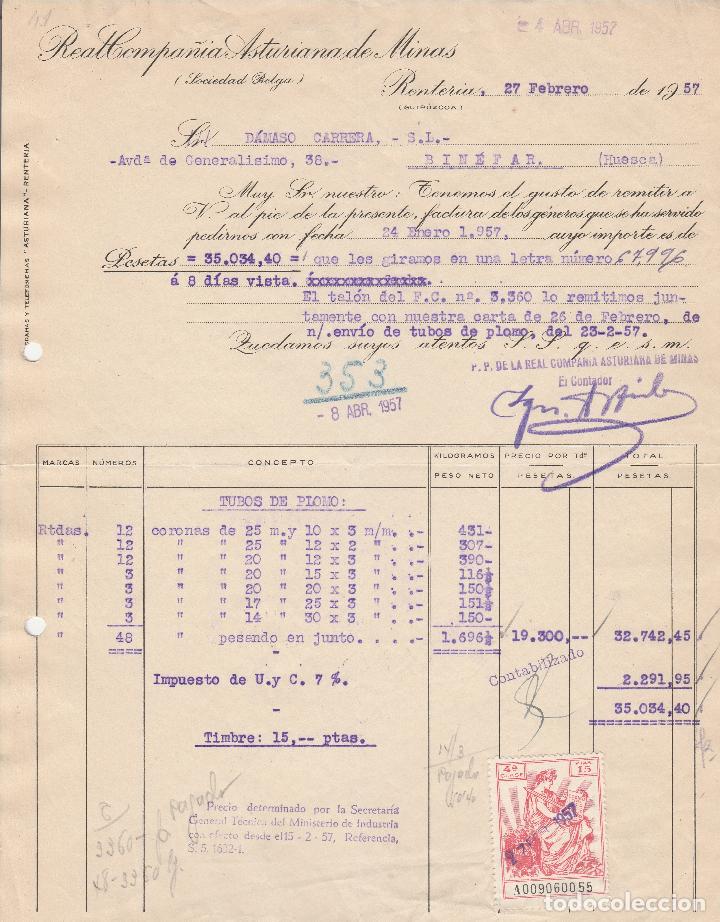 4 ABR. 1957
Real Compañia Asturiana de Minas
( Sociedad Belga )
Renteria, 27 Febrero de 1957
(GUIPÚZCOA)
Sr. DÁMASO CARRERA, - S.L.-
-Avdª de Generalisimo, 38.- BINÉFAR. (Huesca)
GRAMAS Y TELEFONEMAS "ASTURIANA"-RENTERIA
Muy Sr. nuestro: Tenemos el gusto de remitir a
V. al pie de la presente, factura de los géneros que se ha servido
pedirnos con fecha 24 Enero 1.957, cuyo importe es de
Pesetas = 35.034,40 = que les giramos en una letra número 67996
á 8 días vista. xxxxxxxxxxxxxxx.
El talón del F.C. nº. 3.360 lo remitimos jun-
tamente con nuestra carta de 26 de Febrero, de
n/.envío de tubos de plomo, del 23-2-57.
Quedamos suyos atentos S. S. q. e. s. m.
P. P. DE LA REAL COMPAÑIA ASTURIANA DE MINAS
El Contador
353
- 8 ABR. 1957
MARCAS NÚMEROS CONCEPTO KILOGRAMOS PESO NETO PRECIO POR Tdª PESETAS TOTAL PESETAS
TUBOS DE PLOMO:
Rtdas. 12 coronas de 25 m.y 10 x 3 m/m. .- 431-
" 12 " " 25 " 12 x 2 " . .- 307-
" 12 " " 20 " 12 x 3 " . .- 390-
" 3 " " 20 " 15 x 3 " . .- 116½
" 3 " " 20 " 20 x 3 " . .- 150½
" 3 " " 17 " 25 x 3 " . .- 151½
" 3 " " 14 " 30 x 3 " . .- 150-
" 48 " pesando en junto. . . .- 1.696½ 19.300,-- 32.742,45
Contabilizado
Impuesto de U.y C. 7 %. 2.291,95
35.034,40
Timbre: 15,-- ptas.
14/3
pagado
pagado
3360-
48-3350
Precio determinado por la Secretaría
General Técnica del Ministerio de Industria
con efecto desde el 15 - 2 - 57, Referencia,
S. 5. 1632-I.
4ª CLASE
PTAS 15
1957
A009060055
todocoleccion.net